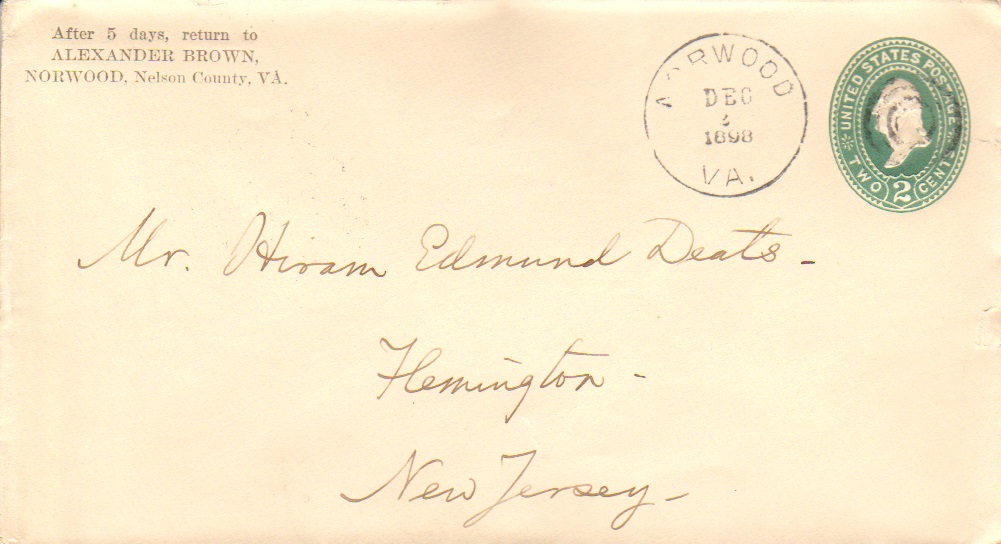 After 5 days, return to
ALEXANDER BROWN,
NORWOOD, Nelson County, VA.
NORWOOD
DEC
1898
VA.
UNITED STATES POSTAGE
TWO 2 CENTS
Mr. Hiram Edmund Deats -
Flemington -
New Jersey -